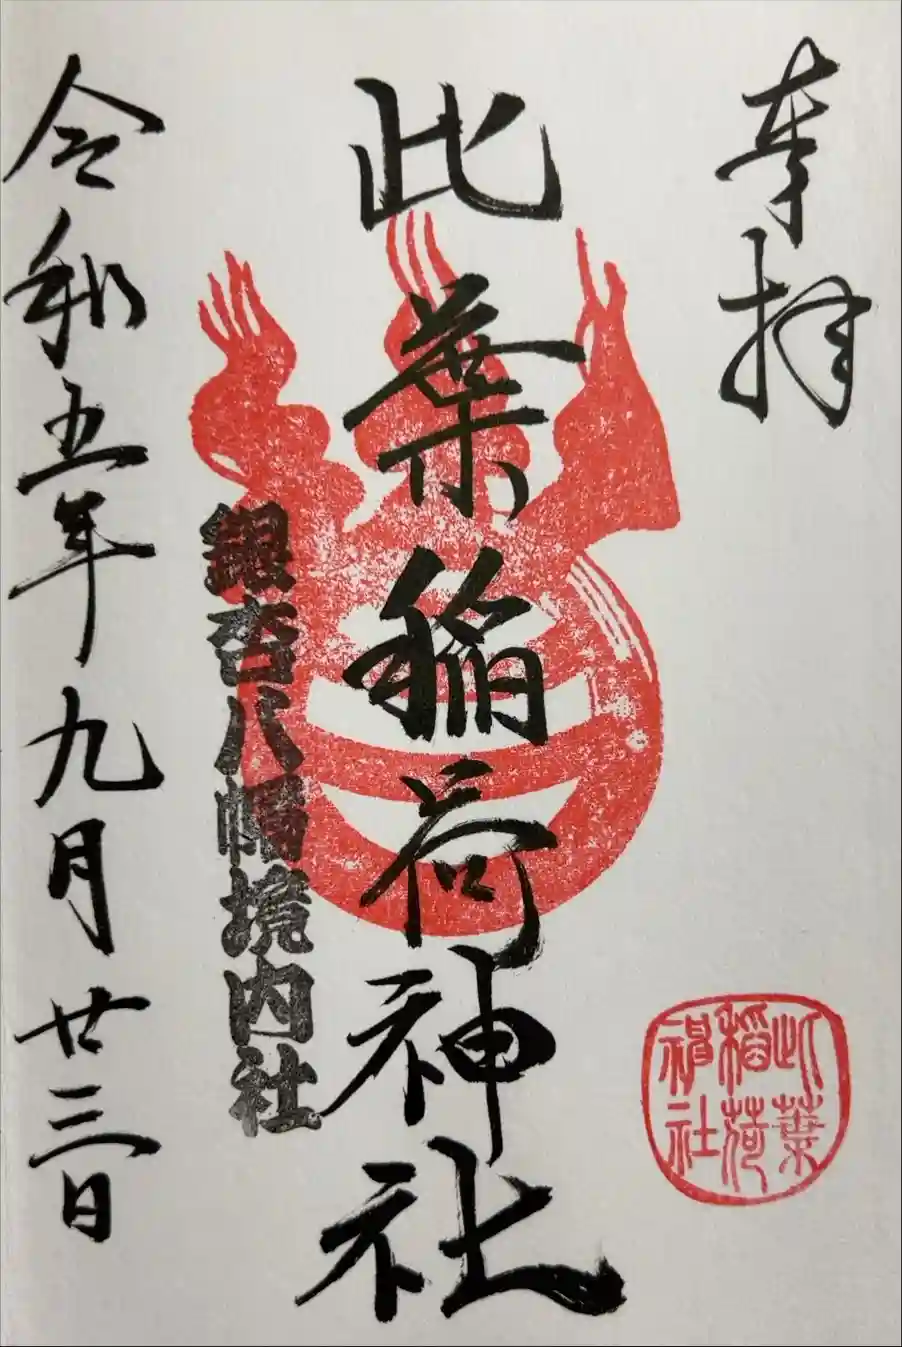 奉拝
此葉稲荷神社
銀杏八幡境内社
令和五年九月廿三日
此葉
稲荷
神社